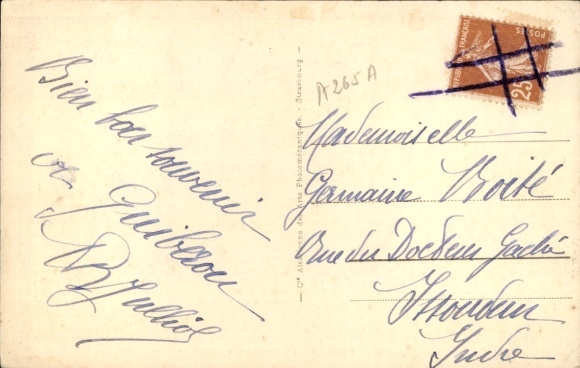 Bien bon souvenir
de Quiberon
A265A
— Cie Alsacienne des Arts Photomécaniques. - Strasbourg —
RÉPUBLIQUE FRANÇAISE
POSTES
25
Mademoiselle
Germaine
Rue du Docteur
Issoudun
Indre